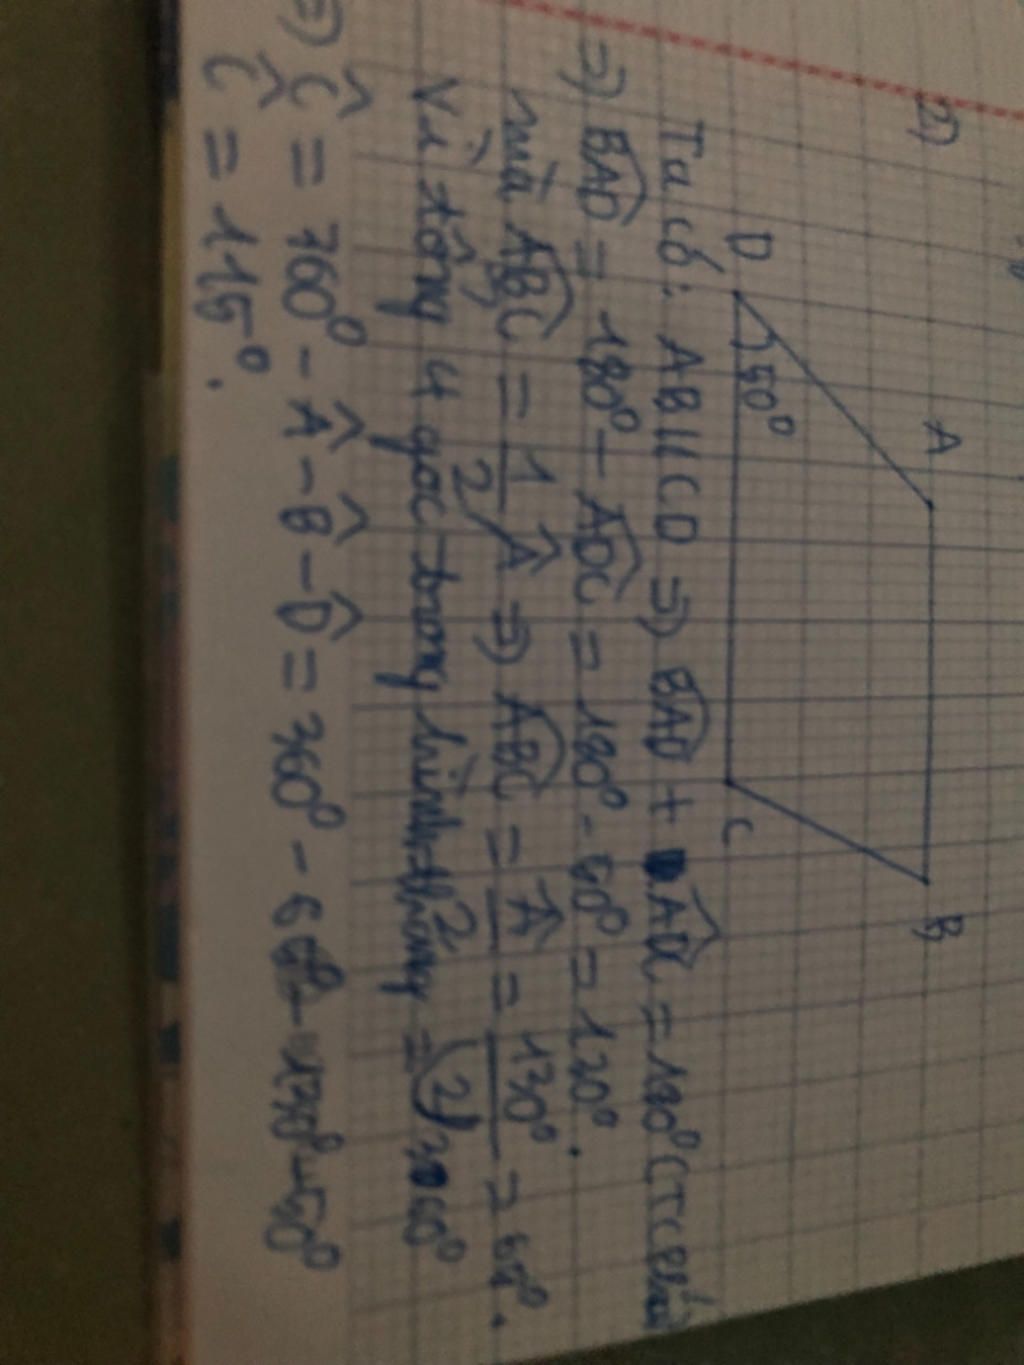 2)
A
B
D
50°
C
Ta có: AB // CD ⇒ BAD + ADC = 180°
⇒ BAD = 180° - ADC = 180° - 50° = 130°.
mà ABC = 1/2 Â ⇒ ABC = Â/2 = 130°/2 = 65°.
Vì tổng 4 góc trong hình thang = 360°
⇒ Ĉ = 360° - Â - B̂ - D̂ = 360° - 65° - 130° - 50°
Ĉ = 115°.